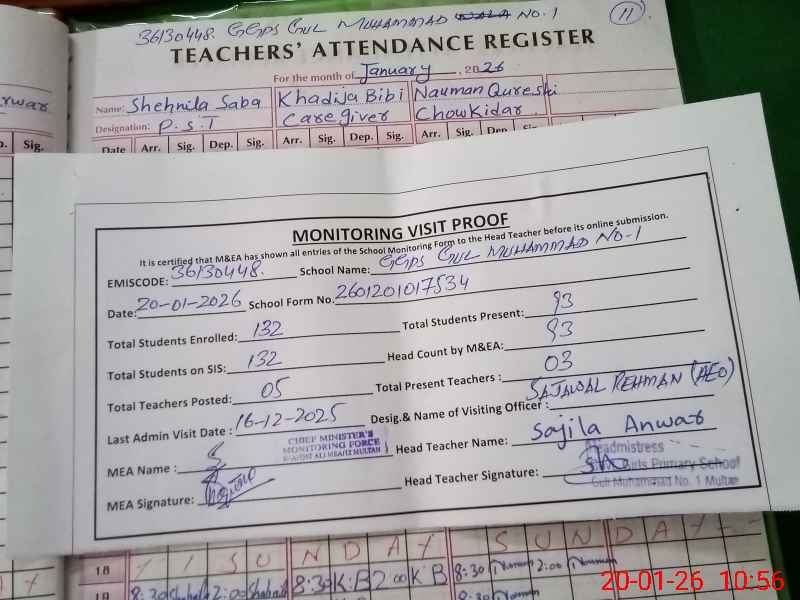 36130448. GGPS GUL MUHAMMAD NO.1
11
TEACHERS' ATTENDANCE REGISTER
For the month of January, 2026
Name: Shehnila Saba Khadija Bibi Nauman Qureshi
Designation: P.S.T Care giver Chowkidar
Date Arr. Sig. Dep. Sig. Arr. Sig. Dep. Sig. Arr. Sig. Dep. Sig.
MONITORING VISIT PROOF
It is certified that M&EA has shown all entries of the School Monitoring Form to the Head Teacher before its online submission.
EMISCODE: 36130448. School Name: GGPS GUL MUHAMMAD NO-1
Date: 20-01-2026 School Form No. 2601201017534
Total Students Enrolled: 132 Total Students Present: 93
Total Students on SIS: 132 Head Count by M&EA: 93
Total Teachers Posted: 05 Total Present Teachers : 03
Last Admin Visit Date : 16-12-2025 Desig.& Name of Visiting Officer : SAJAWAL REHMAN (AEO)
MEA Name : CHIEF MINISTER'S MONITORING FORCE Head Teacher Name: Sajila Anwar
MEA Signature: Head Teacher Signature:
Headmistress
Girls Primary School
Gul Muhammad No. 1 Multan
18 SUNDAY SUNDAY
19 8:30 2:00 8:30 K.B 2:00 K B 8:30 2:00
8:30
20-01-26 10:56